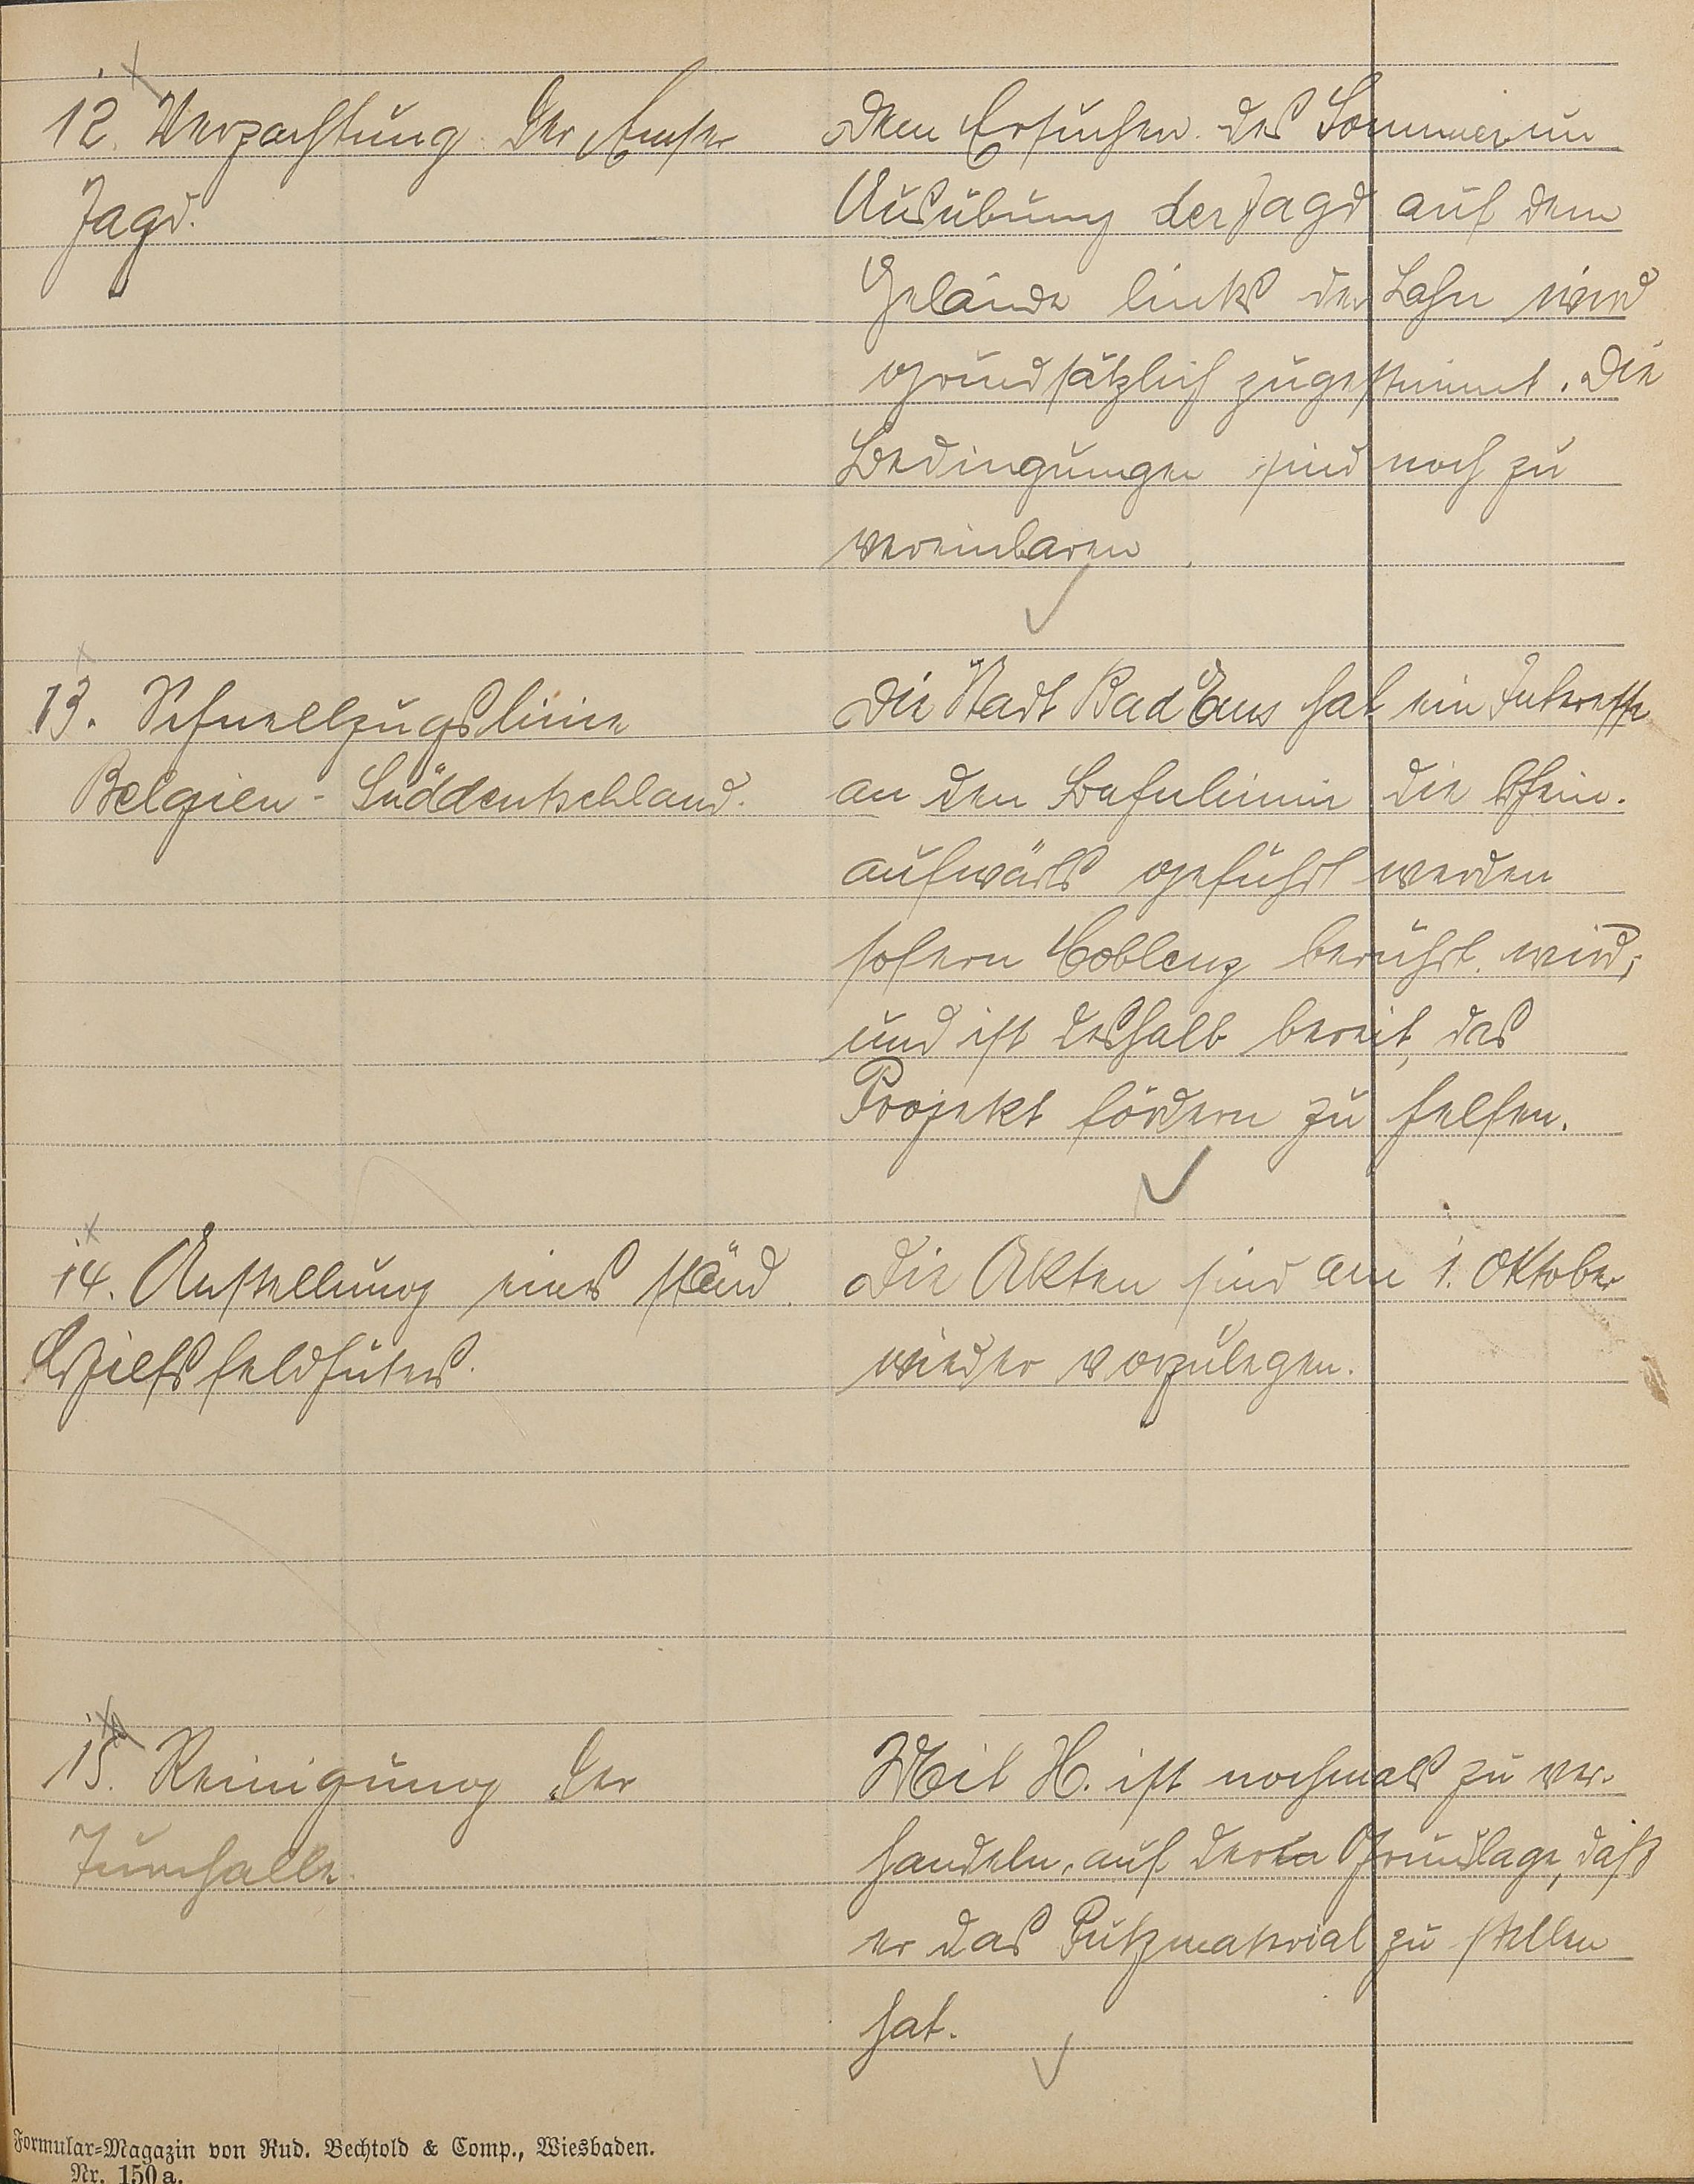 12. Verpachtung der Emser
Jagd.
Dem Ersuchen des Sommer um
Ausübung der Jagd auf dem
Gelände links der Lahn wird
grundsätzlich zugestimmt. Die
Bedingungen sind noch zu
vereinbaren.
13. Schnellzugslinie
Belgien - Süddeutschland.
Die Stadt Bad Ems hat ein Interesse
an den Bahnlinien die Rhein-
aufwärts geführt werden
sofern Coblenz berührt wird,
und ist deshalb bereit, das
Projekt fördern zu helfen.
14. Anstellung eines städ.
Hilfsfeldhüters.
Die Akten sind am 1. Oktober
wieder vorzulegen.
15. Reinigung der
Turnhalle.
Mit H. ist nochmals zu ver-
handeln, auf der Grundlage, daß
er das Putzmaterial zu stellen
hat.
Formular-Magazin von Rud. Bechtold & Comp., Wiesbaden.
Nr. 150 a.